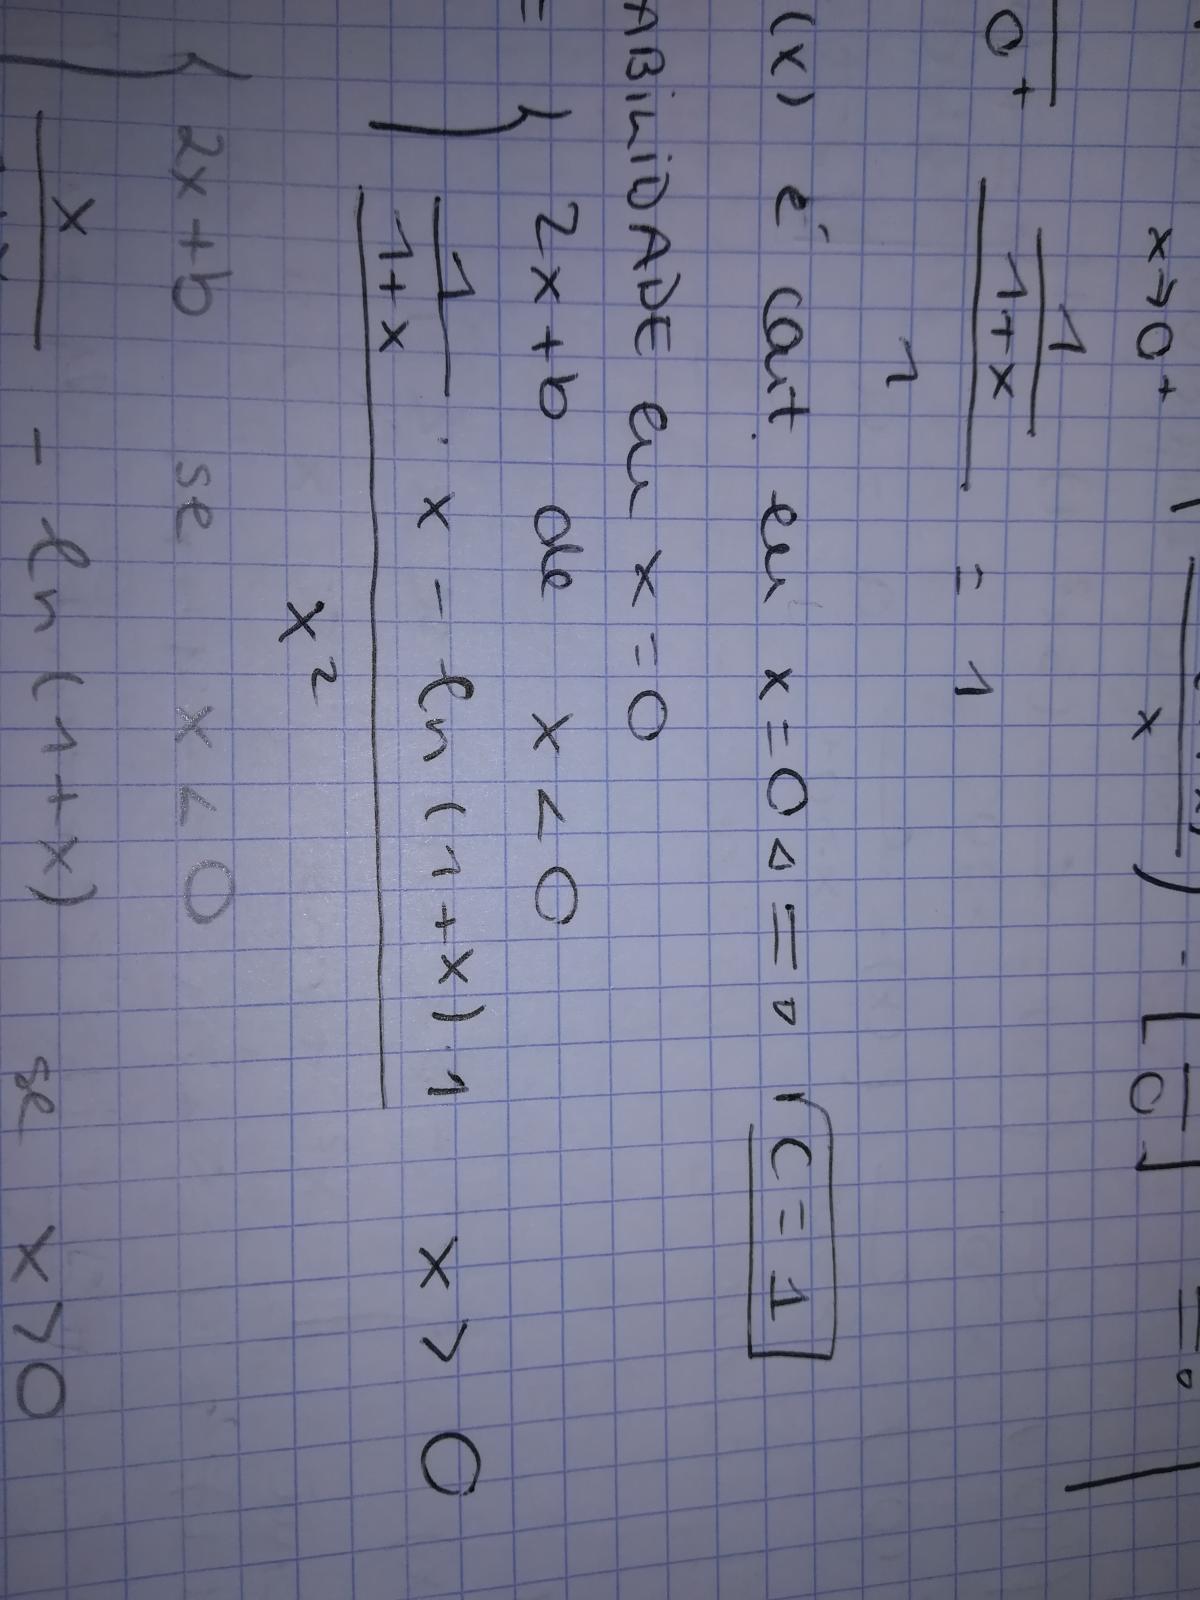 x→0+ x ) . [ 0 ] =
0+ 1
1+x = 1
1
(x) é cont em x=0 <=> C=1
ABILIDADE em x=0
= { 2x+b de x<0
1 . x - ln(1+x).1 x>0
1+x
x²
{ 2x+b se x<0
x - ln(1+x) se x>0